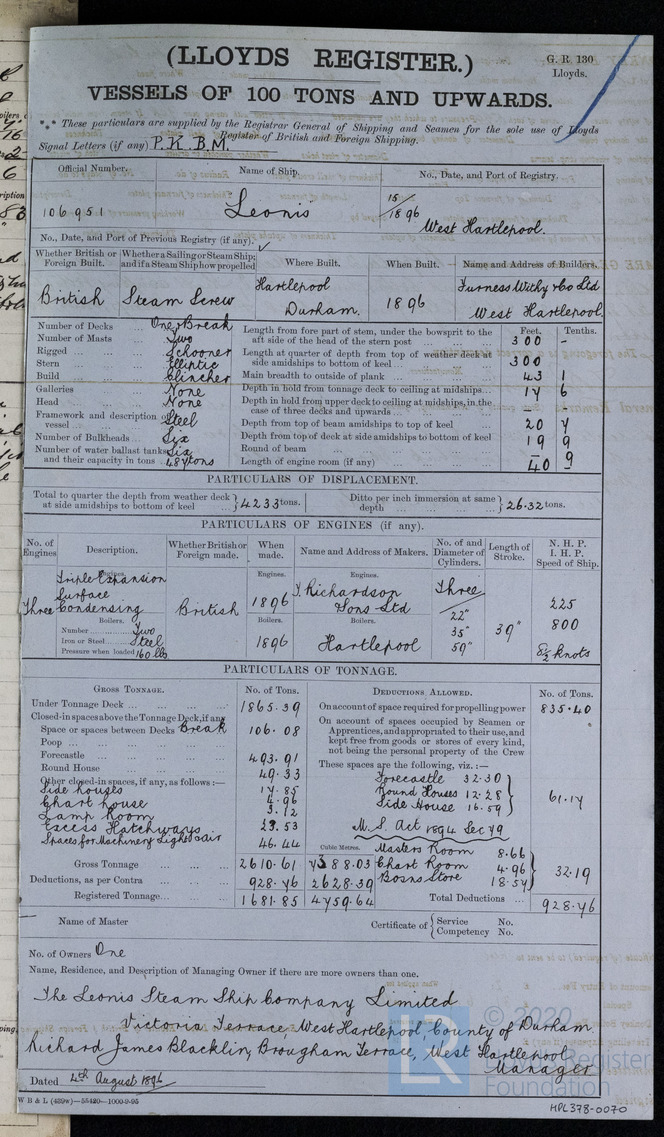 (LLOYDS REGISTER.)
G. R. 130
Lloyds.
VESSELS OF 100 TONS AND UPWARDS.
*** These particulars are supplied by the Registrar General of Shipping and Seamen for the sole use of Lloyds
Register of British and Foreign Shipping.
Signal Letters (if any) P.K.B.M.
Official Number. Name of Ship. No., Date, and Port of Registry.
106951 Leonis 15/1896 West Hartlepool.
No., Date, and Port of Previous Registry (if any).
Whether British or Foreign Built. Whether a Sailing or Steam Ship; and if a Steam Ship how propelled Where Built. When Built. Name and Address of Builders.
British Steam Screw Hartlepool Durham. 1896 Furness Withy & Co Ltd West Hartlepool.
Number of Decks ... One & Break
Number of Masts ... Two
Rigged ... Schooner
Stern ... Elliptic
Build ... Clincher
Galleries ... None
Head ... None
Framework and description of vessel ... Steel
Number of Bulkheads ... Six
Number of water ballast tanks Six
and their capacity in tons 487 tons
Feet. Tenths.
Length from fore part of stem, under the bowsprit to the aft side of the head of the stern post ... 300 -
Length at quarter of depth from top of weather deck at side amidships to bottom of keel ... 300
Main breadth to outside of plank ... 43 1
Depth in hold from tonnage deck to ceiling at midships ... 17 6
Depth in hold from upper deck to ceiling at midships, in the case of three decks and upwards ... - -
Depth from top of beam amidships to top of keel ... 20 7
Depth from top of deck at side amidships to bottom of keel 19 9
Round of beam ... - 9
Length of engine room (if any) ... 40 -
PARTICULARS OF DISPLACEMENT.
Total to quarter the depth from weather deck at side amidships to bottom of keel } 4233 tons. Ditto per inch immersion at same depth ... } 26.32 tons.
PARTICULARS OF ENGINES (if any).
No. of Engines. Description. Whether British or Foreign made. When made. Name and Address of Makers. No. of and Diameter of Cylinders. Length of Stroke. N. H. P. I. H. P. Speed of Ship.
Engines. Engines. Engines.
Three Triple Expansion Surface Condensing British 1896 T. Richardson Sons Ltd Three 22" 35" 59" 39" 225 800 8½ knots
Boilers. Boilers. Boilers.
Number ... Two
Iron or Steel ... Steel 1896 Hartlepool
Pressure when loaded 160 lbs
PARTICULARS OF TONNAGE.
GROSS TONNAGE. No. of Tons. DEDUCTIONS ALLOWED. No. of Tons.
Under Tonnage Deck ... 1865.39
Closed-in spaces above the Tonnage Deck, if any
Space or spaces between Decks Break 106.08
Poop ...
Forecastle ... 493.91
Round House ... 49.33
Other closed-in spaces, if any, as follows:—
Side houses 17.85
Chart house 4.96
Lamp Room 3.12
Excess Hatchways 23.53
Spaces for Machinery Light & air 46.44
Cubic Metres.
Gross Tonnage 2610.61 7388.03
Deductions, as per Contra ... 928.76 2628.39
Registered Tonnage ... 1681.85 4759.64
On account of space required for propelling power 835.40
On account of spaces occupied by Seamen or Apprentices, and appropriated to their use, and kept free from goods or stores of every kind, not being the personal property of the Crew
These spaces are the following, viz.:—
Forecastle 32.30
Round Houses 12.28
Side House 16.59
61.17
M. S. Act 1894 Sec 79
Masters Room 8.66
Chart Room 4.96
Bosns Store 18.57
32.19
Total Deductions ... 928.76
Name of Master
Certificate of { Service No.
Competency No.
No. of Owners One
Name, Residence, and Description of Managing Owner if there are more owners than one.
The Leonis Steam Ship Company Limited
Victoria Terrace, West Hartlepool, County of Durham.
Richard James Blacklin, Brougham Terrace, West Hartlepool
Manager
Dated 4th August 1896
W B & L (439w)—55420—1000-9-95
© 2020
LR
Lloyd's Register
Foundation
HPL378-0070